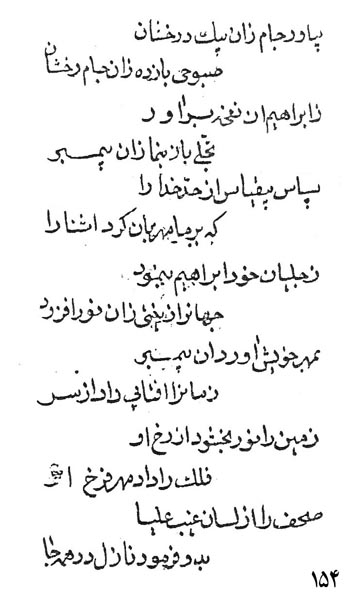 بیاور جام زان پیک درخشان
صبوحی بازده زان جام رخشان
ز ابراهیم ان نغمه براور
تجلی باز بنما زان پیمبر
سپاس بیقیاس از حد خدا را
که بر ما مهربان کرد اشنا را
ز جلباب خود ابراهیم بنمود
جهانرا زینتی زان نور افزود
بمهر خویش اورد ان پیمبر
زمانرا افتابی داد از سر
زمین را نور بخشود از رخ او
فلک را داد مهر فرخ او
صحف را از لسان غیب علیا
بدو فرمود نازل در همه جا
۱۵۴